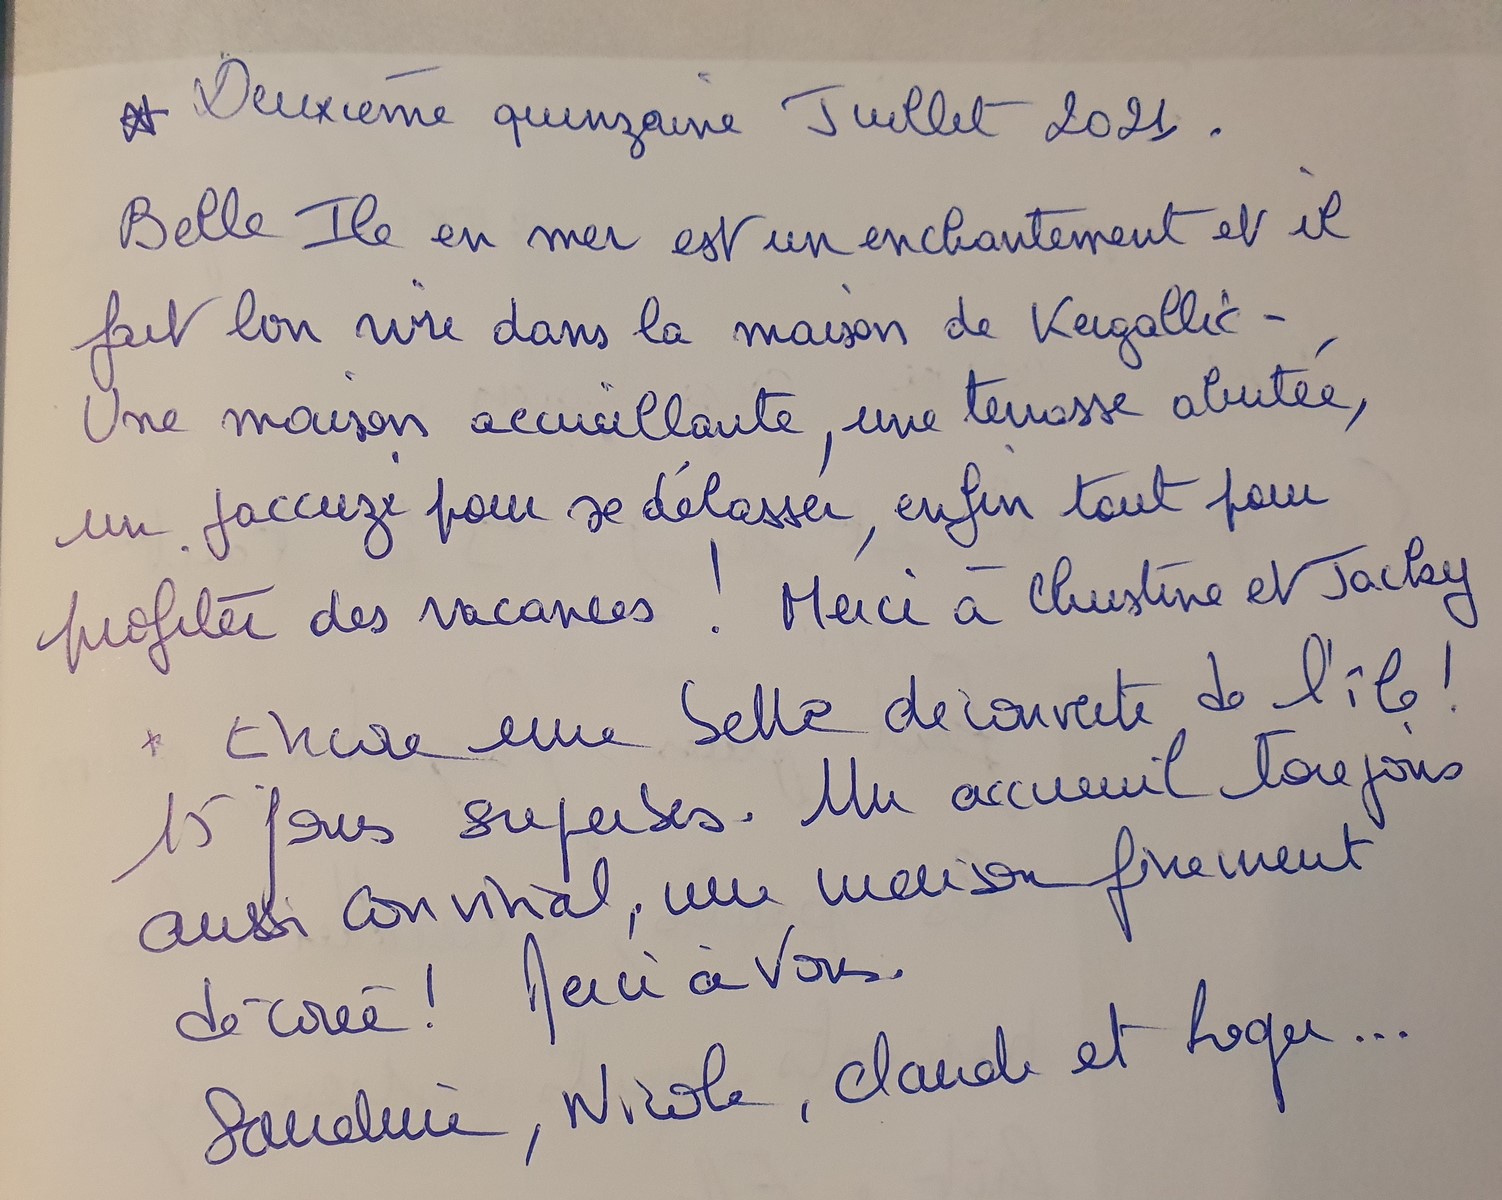 * Deuxième quinzaine Juillet 2021.
Belle Ile en mer est un enchantement et il
fait bon vivre dans la maison de Kergallic -
Une maison accueillante, une terrasse abritée,
un jaccuzi pour se délasser, enfin tout pour
profiter des vacances ! Merci à Christine et Jacky
* Encore une belle découverte de l'île !
15 jours superbes. Un accueuil toujours
aussi convivial, une maison finement
décorée ! Merci à Vous.
Sandrine, Nicole, Claude et Roger...